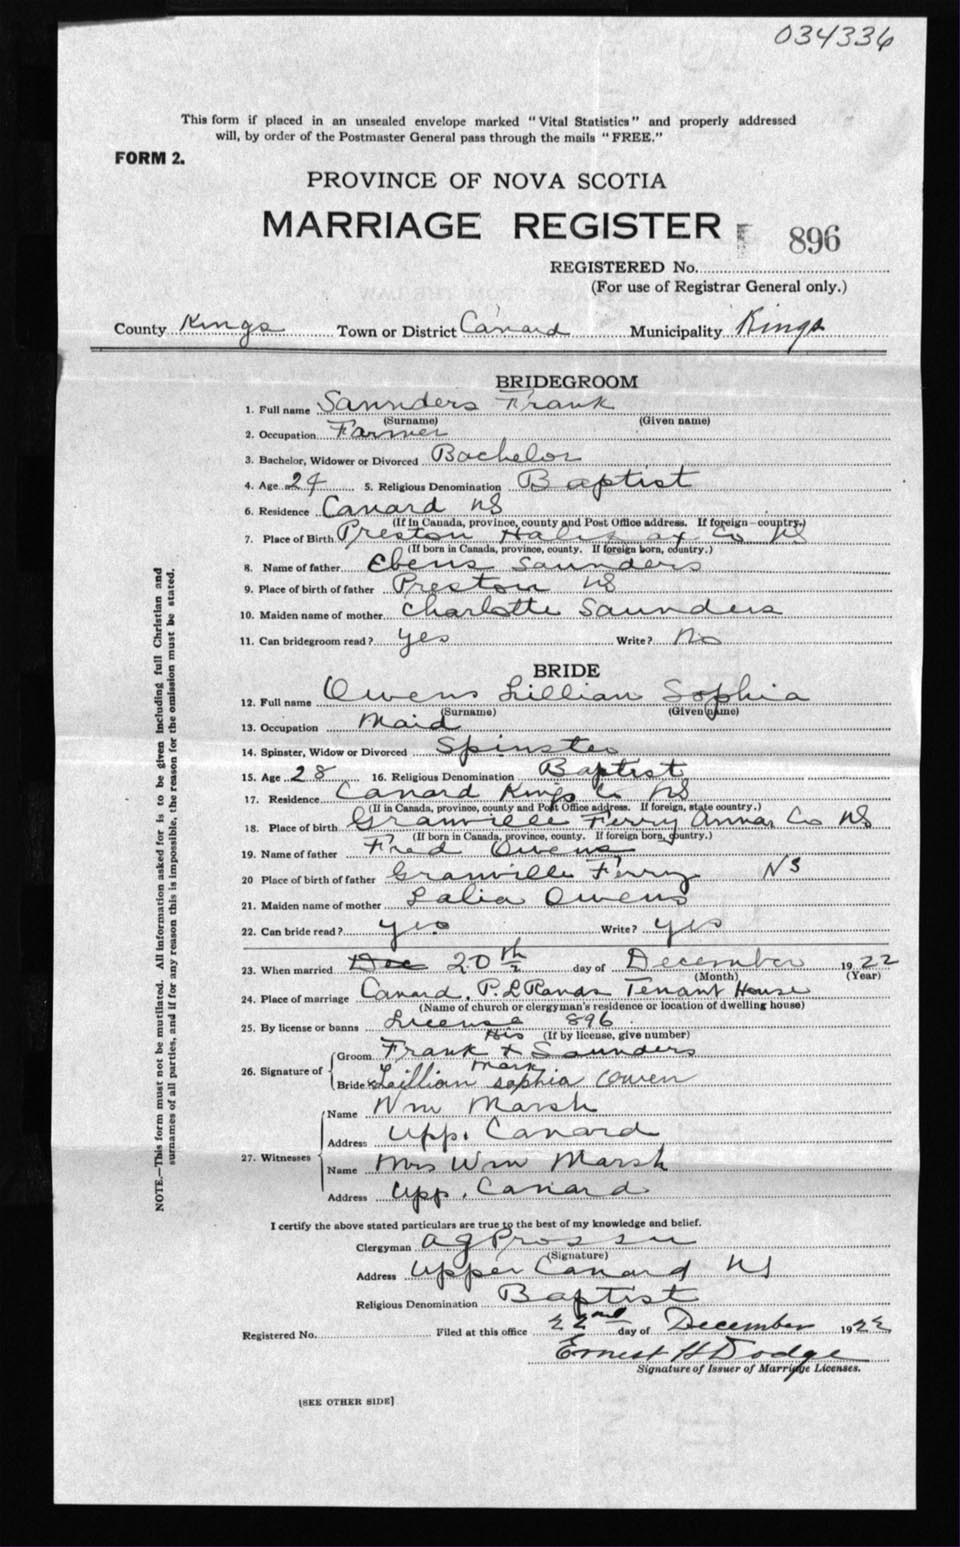 034336
This form if placed in an unsealed envelope marked "Vital Statistics" and properly addressed
will, by order of the Postmaster General pass through the mails "FREE."
FORM 2.
PROVINCE OF NOVA SCOTIA
MARRIAGE REGISTER
896
REGISTERED No.
(For use of Registrar General only.)
County Kings Town or District Canard Municipality Kings
BRIDEGROOM
1. Full name Saunders Frank
(Surname) (Given name)
2. Occupation Farmer
3. Bachelor, Widower or Divorced Bachelor
4. Age 24 5. Religious Denomination Baptist
6. Residence Canard NS
(If in Canada, province, county and Post Office address. If foreign—country.)
7. Place of Birth Preston Halifax Co NS
(If born in Canada, province, county. If foreign born, country.)
8. Name of father Ebens Saunders
9. Place of birth of father Preston NS
10. Maiden name of mother Charlotte Saunders
11. Can bridegroom read? yes Write? No
BRIDE
12. Full name Owens Lillian Sophia
(Surname) (Given name)
13. Occupation Maid
14. Spinster, Widow or Divorced Spinster
15. Age 28 16. Religious Denomination Baptist
17. Residence Canard Kings Co NS
(If in Canada, province, county and Post Office address. If foreign, state country.)
18. Place of birth Granville Ferry Annas Co NS
(If born in Canada, province, county. If foreign born, country.)
19. Name of father Fred Owens
20 Place of birth of father Granville Ferry NS
21. Maiden name of mother Lalia Owens
22. Can bride read? yes Write? yes
23. When married Dec 20th day of December 1922
(Month) (Year)
24. Place of marriage Canard, P. L Rands Tenant House
(Name of church or clergyman's residence or location of dwelling house)
25. By license or banns License 896
(If by license, give number)
His
26. Signature of Groom Frank x Saunders
Mark
Bride x Lillian Sophia Owen
27. Witnesses Name Wm Marsh
Address Upp. Canard
Name Mrs Wm Marsh
Address Upp. Canard
I certify the above stated particulars are true to the best of my knowledge and belief.
Clergyman A G
(Signature)
Address Upper Canard NS
Religious Denomination Baptist
Registered No. Filed at this office 22nd day of December 1922
Ernest H Dodge
Signature of Issuer of Marriage Licenses.
[SEE OTHER SIDE]
NOTE.—This form must not be mutilated. All information asked for is to be given including full Christian and
surnames of all parties, and if for any reason this is impossible, the reason for the omission must be stated.